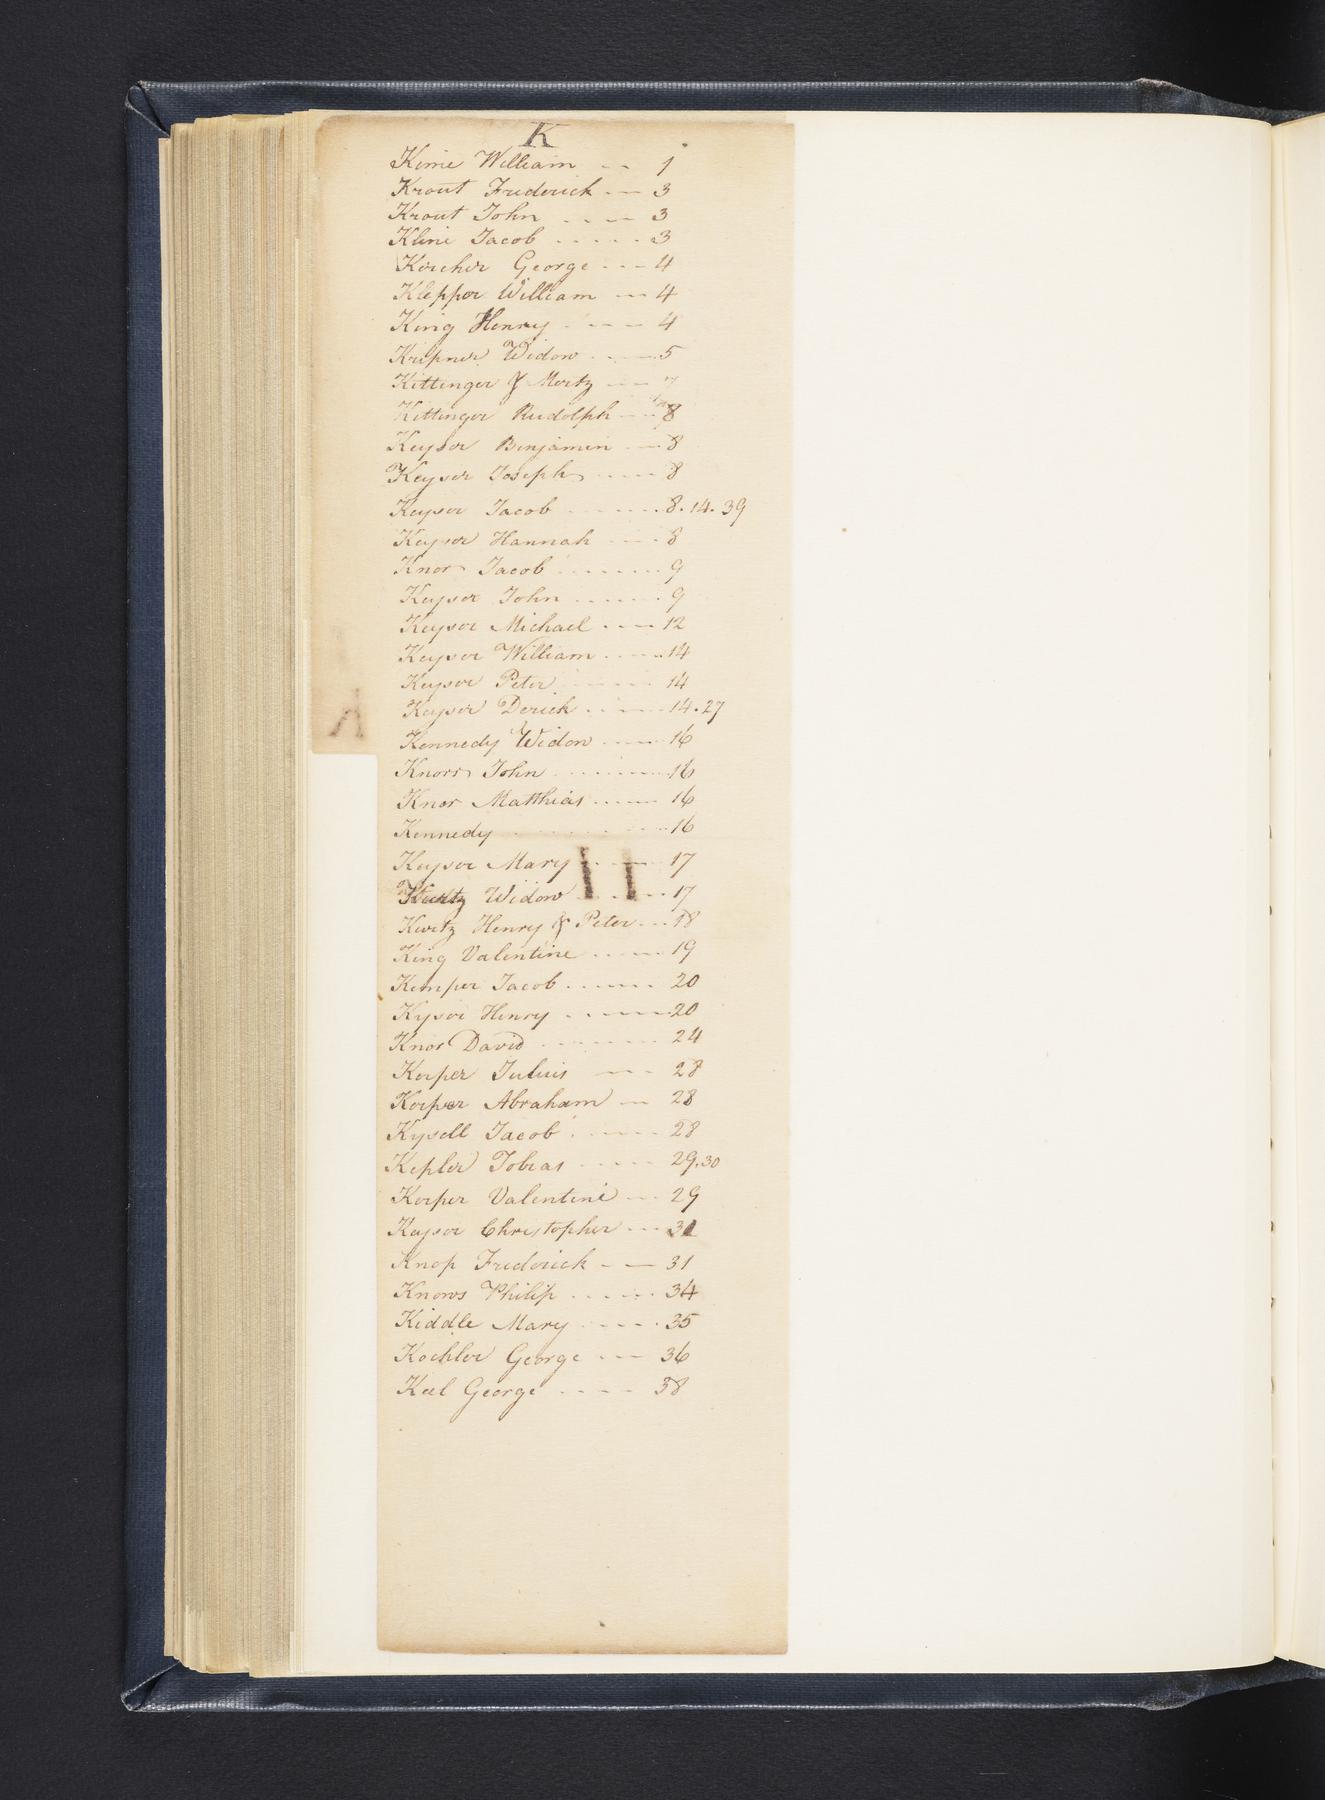 K
Kime William - - 1
Krout Frederick - - 3
Krout John - - - - 3
Kline Jacob - - - - - 3
Kercher George - - - 4
Klepper William - - 4
King Henry - - - - 4
Kripner Widow - - - 5
Kittinger & Mertz - - 7
Kittinger Rudolph - - 8
Keyser Benjamin - - 8
Keyser Joseph - - - 8
Keyser Jacob - - - - 8. 14. 39
Keyser Hannah - - - 8
Knor Jacob - - - - - 9
Keyser John - - - - - 9
Keyser Michael - - - 12
Keyser William - - - - 14
Keyser Peter - - - - 14
Keyser Derick - - - - 14. 27
Kennedy Widow - - - 16
Knorr John - - - - - 16
Knor Matthias - - - - 16
Kennedy - - - - - - 16
Keyser Mary - - - 17
Kurtz Widow - - - 17
Kurtz Henry & Peter - - 18
King Valentine - - - - 19
Kemper Jacob - - - - 20
Kyser Henry - - - - 20
Knor David - - - - - 24
Kerper Julius - - - 28
Kerper Abraham - - 28
Kysell Jacob - - - - 28
Kepler Tobias - - - - 29. 30
Kerper Valentine - - 29
Keyser Christopher - - - 31
Knop Frederick - - - 31
Knows Philip - - - - - 34
Kiddle Mary - - - - 35
Kochler George - - - 36
Keel George - - - - 38